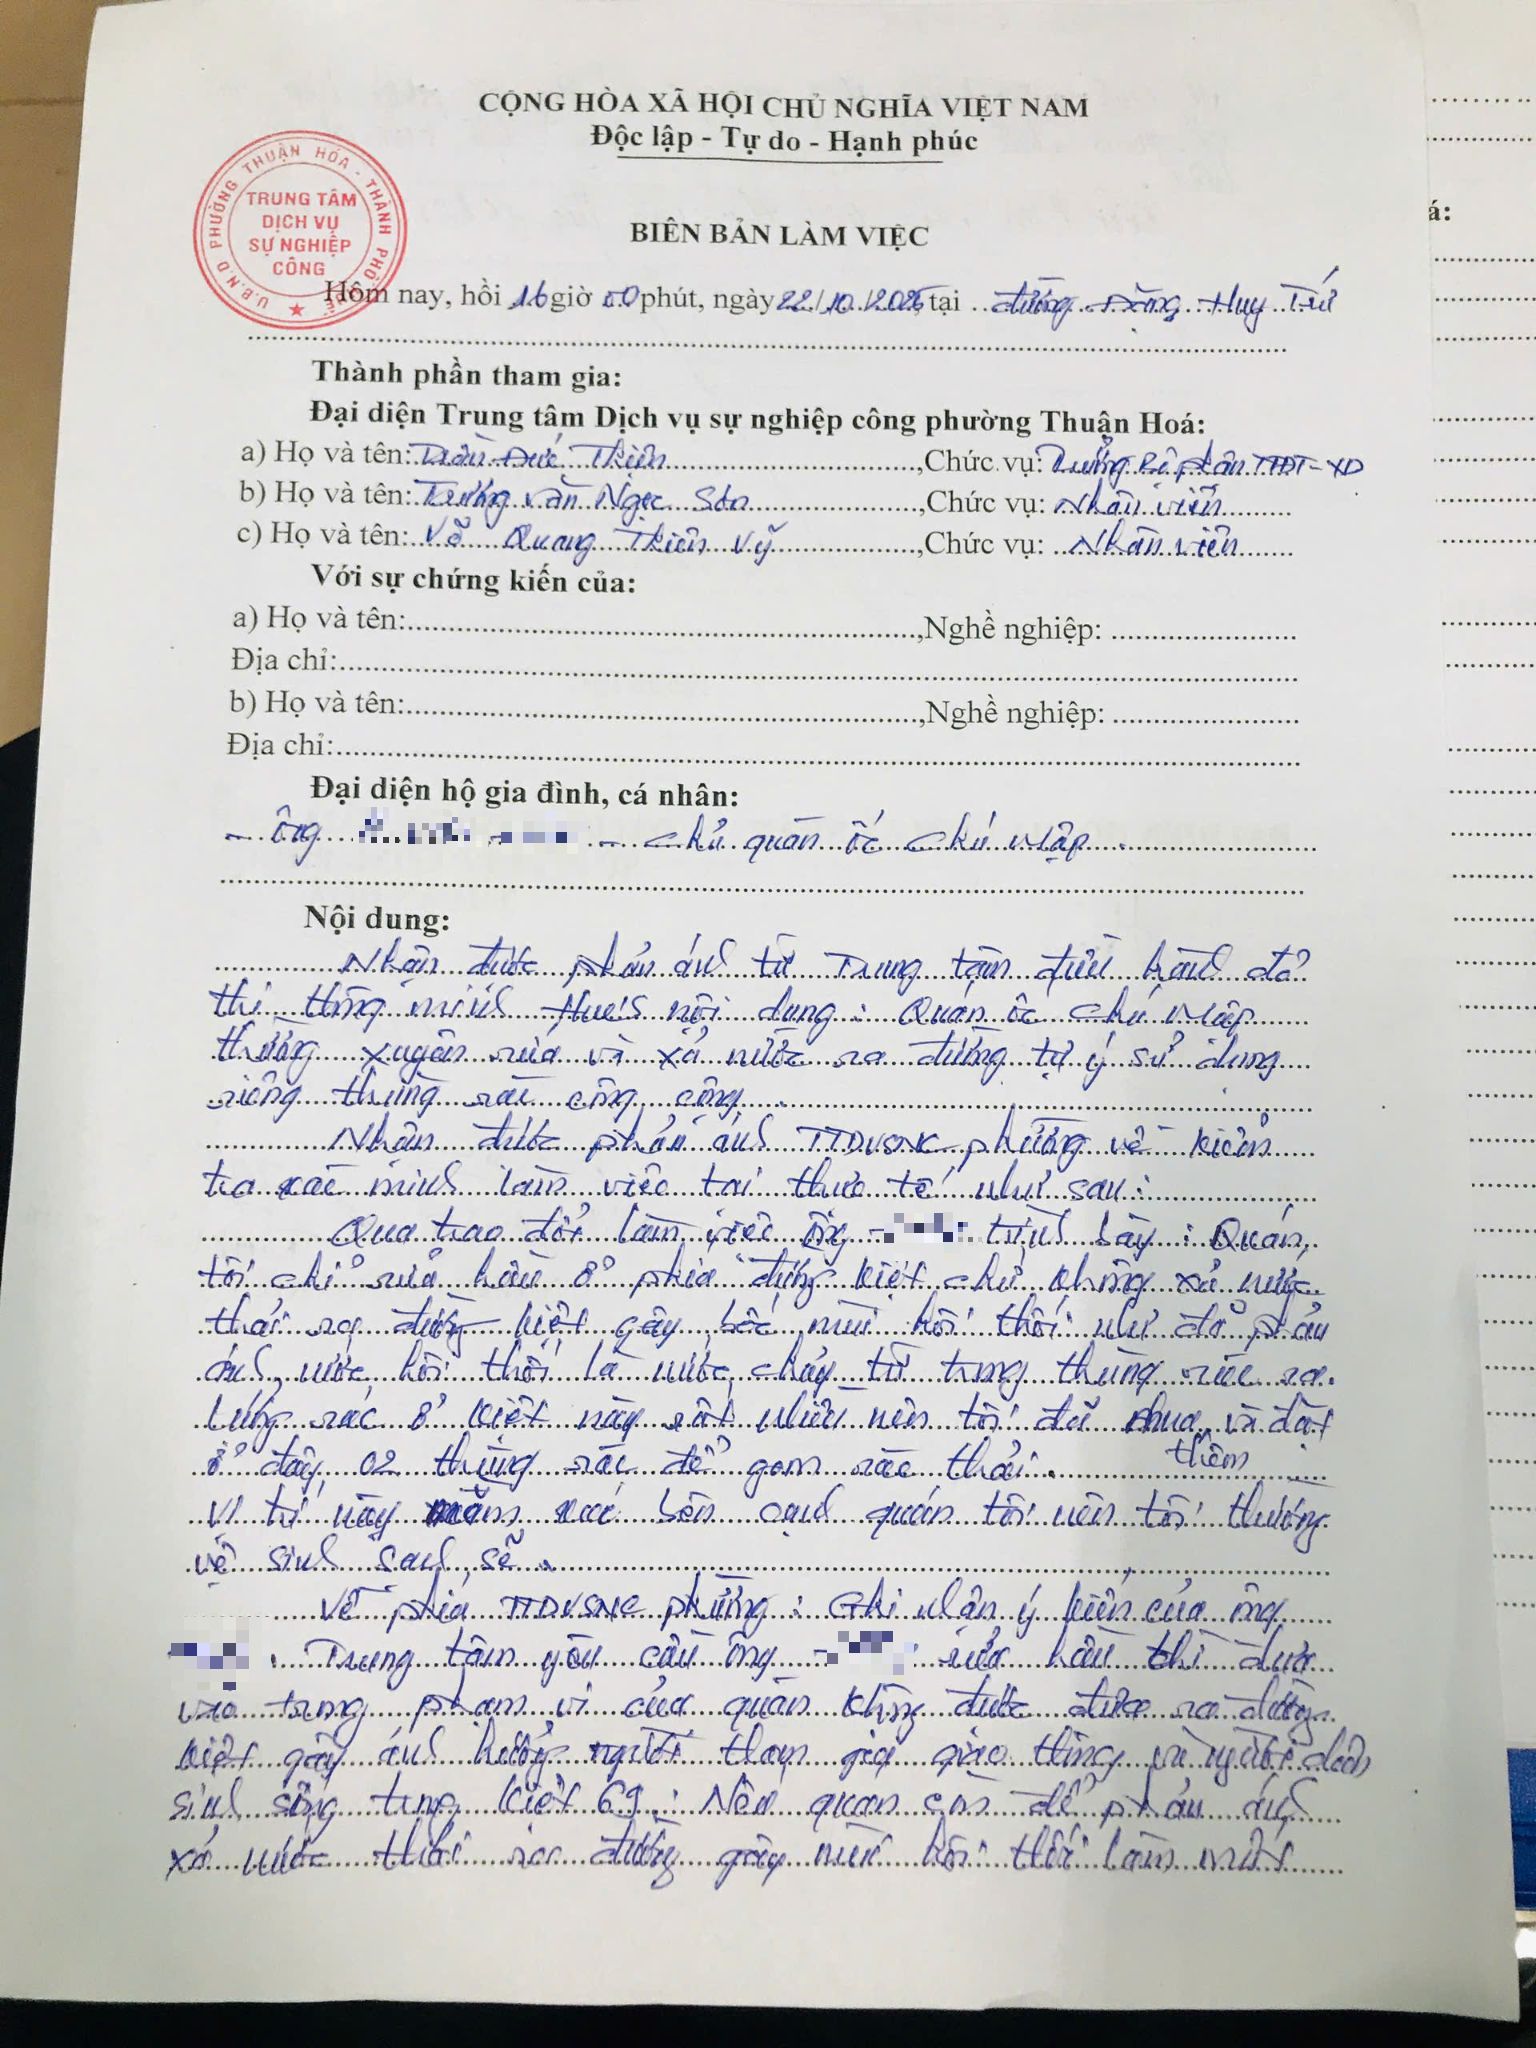 CỘNG HÒA XÃ HỘI CHỦ NGHĨA VIỆT NAM
Độc lập - Tự do - Hạnh phúc
U.B.N.D PHƯỜNG THUẬN HÓA - THÀNH PHỐ HUẾ
TRUNG TÂM
DỊCH VỤ
SỰ NGHIỆP
CÔNG
BIÊN BẢN LÀM VIỆC
Hôm nay, hồi 16 giờ 00 phút, ngày 22/10/2025, tại đường Đặng Huy Trứ
Thành phần tham gia:
Đại diện Trung tâm Dịch vụ sự nghiệp công phường Thuận Hoá:
a) Họ và tên: Trần Đức Thiện, Chức vụ: Trưởng bộ phận TTĐT-XD
b) Họ và tên: Trương Văn Ngọc Sơn, Chức vụ: Nhân viên
c) Họ và tên: Võ Quang Thiên Vỹ, Chức vụ: Nhân viên
Với sự chứng kiến của:
a) Họ và tên:, Nghề nghiệp:
Địa chỉ:
b) Họ và tên:, Nghề nghiệp:
Địa chỉ:
Đại diện hộ gia đình, cá nhân:
- ông - chủ quán ốc Chú Mập.
Nội dung:
Nhận được phản ánh từ Trung tâm điều hành đô
thị thông minh HueS nội dung: Quán ốc Chú Mập
thường xuyên rửa và xả nước ra đường tự ý sử dụng
riêng thùng rác công cộng.
Nhận được phản ánh TTDVSNC phường về kiểm
tra xác minh làm việc tại thực tế như sau:
Qua trao đổi làm việc ông trình bày: Quán
tôi chỉ rửa hàu ở phía đường kiệt chứ không xả nước
thải ra đường kiệt gây bốc mùi hôi thối như đã phản
ánh, nước hôi thối là nước chảy từ trong thùng rác ra.
Lượng rác ở kiệt này rất nhiều nên tôi đã mua và đặt
thêm
ở đây 02 thùng rác để gom rác thải.
Vị trí này nằm sát bên cạnh quán tôi nên tôi thường
vệ sinh sạch sẽ.
Về phía TTDVSNC phường: Ghi nhận ý kiến của ông
. Trung tâm yêu cầu ông rửa hàu thì đưa
vào trong phạm vi của quán không được đưa ra đường
kiệt gây ảnh hưởng người tham gia giao thông và người dân
sinh sống trong kiệt 69. Nếu quán còn để phản ánh
xả nước thải ra đường gây mùi hôi thối làm mất
á: